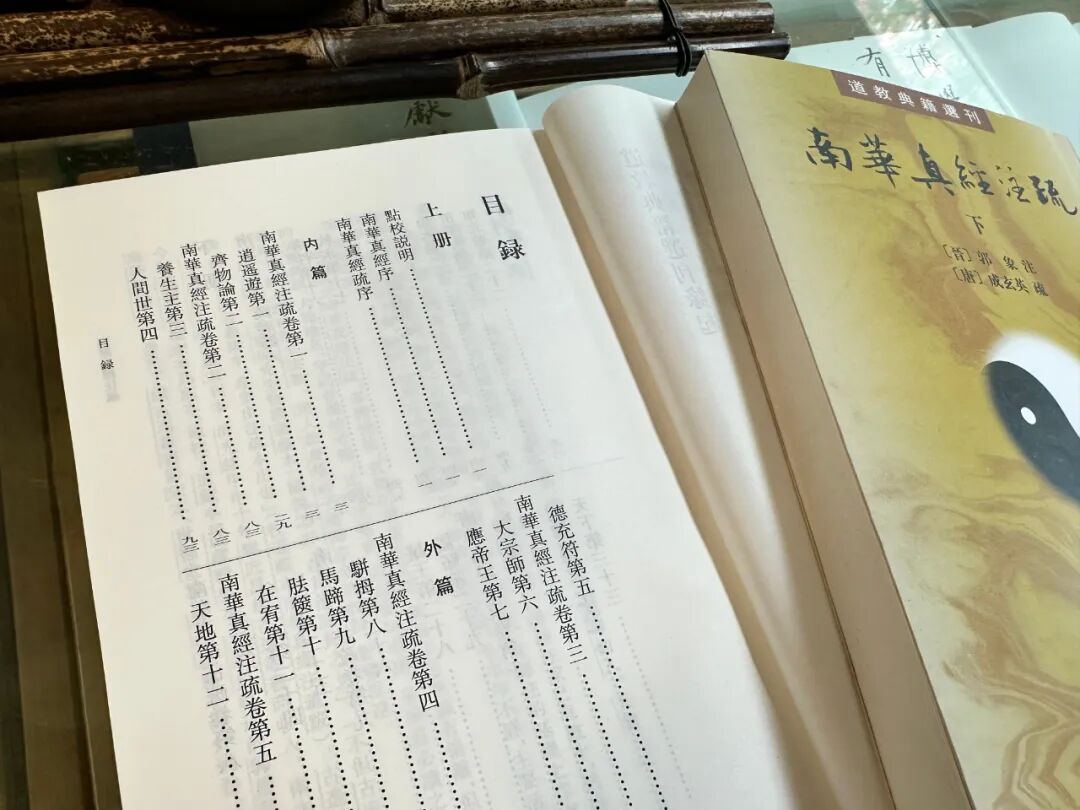 目録
上册
點校説明 一
南華真經序 一
南華真經疏序 一
内篇
南華真經注疏卷第一
逍遥遊第一
齊物論第二 二九
南華真經注疏卷第二 八三
養生主第三 八三
人間世第四 九三
德充符第五
南華真經注疏卷第三
大宗師第六
應帝王第七
外篇
南華真經注疏卷第四
駢拇第八
馬蹄第九
胠篋第十
在宥第十一
南華真經注疏卷第五
天地第十二
目録
道教典籍選刊
南華真經注疏
下
〔晉〕郭象注
〔唐〕成玄英疏
有